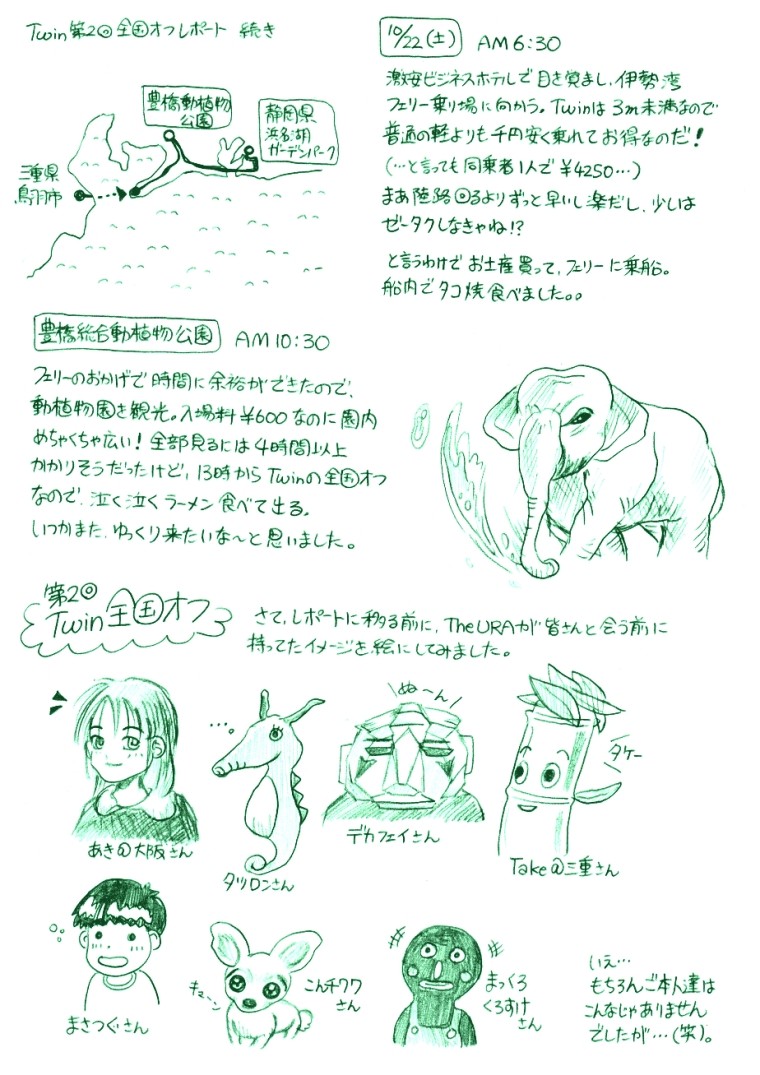 Twin 第2回 全国オフレポート 続き
豊橋動植物
公園
静岡県
浜名湖
ガーデンパーク
三重県
鳥羽市
10/22(土) AM6:30
激安ビジネスホテルで目を覚まし、伊勢湾
フェリー乗り場に向かう。Twinは3m未満なので
普通の軽よりも千円安く乗れてお得なのだ!
(…と言っても同乗者1人で¥4250…)
まあ陸路回るよりずっと早いし楽だし、少しは
ゼータクしなきゃね!?
と言うわけでお土産買って、フェリーに乗船。
船内でタコ焼食べました。。
豊橋総合動植物公園 AM10:30
フェリーのおかげで時間に余裕ができたので、
動植物園を観光。入場料¥600なのに園内
めちゃくちゃ広い!全部見るには4時間以上
かかりそうだったけど、13時からTwinの全国オフ
なので、泣く泣くラーメン食べて出る。
いつかまた、ゆっくり来たいな〜と思いました。
第2回
Twin全国オフ
さて、レポートに移る前に、TheURAが皆さんと会う前に
持ってたイメージを絵にしてみました。
あき@大阪さん
…
タツロンさん
ぬ〜ん
デカフェイさん
タケー
Take@三重さん
まさつぐさん
キュ〜ン
こんチワワ
さん
まっくろ
くろすけ
さん
いえ…
もちろんご本人達は
こんなじゃありません
でしたが…(笑)。